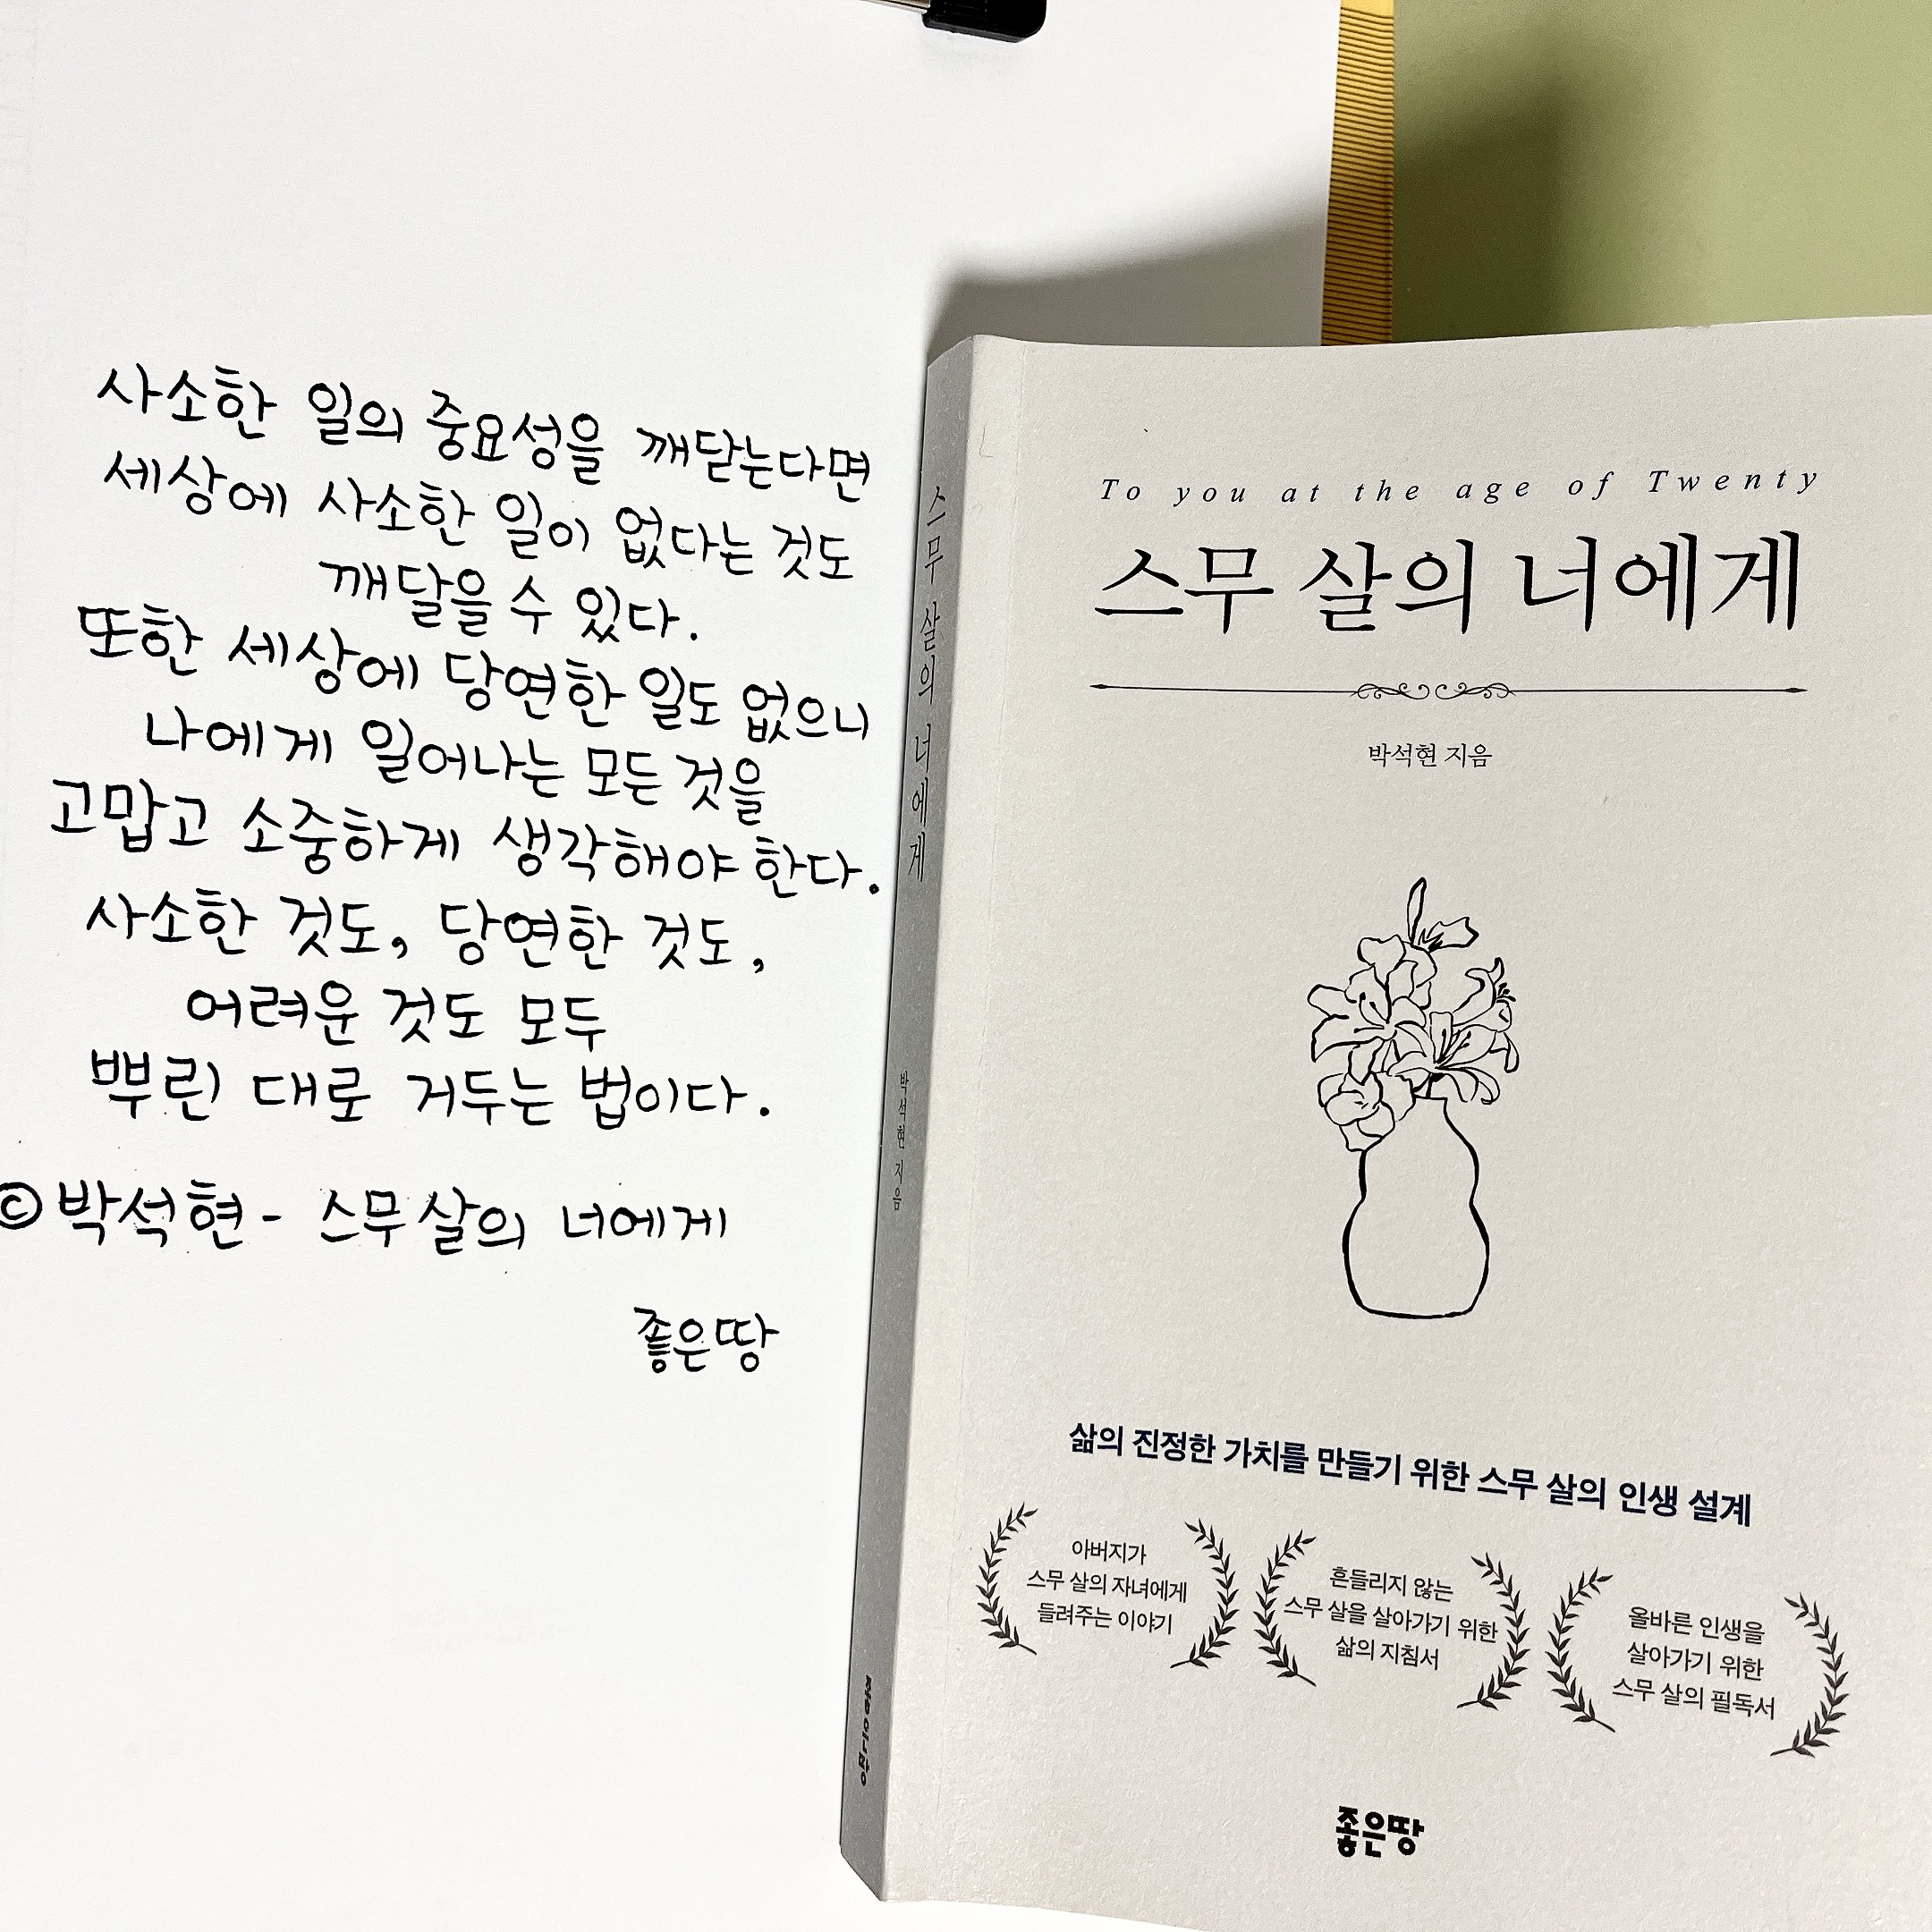 사소한 일의 중요성을 깨닫는다면
세상에 사소한 일이 없다는 것도
깨달을 수 있다.
또한 세상에 당연한 일도 없으니
나에게 일어나는 모든 것을
고맙고 소중하게 생각해야 한다.
사소한 것도, 당연한 것도,
어려운 것도 모두
뿌린 대로 거두는 법이다.
©박석현 - 스무살의 너에게
좋은땅
스무 살의 너에게
박석현 지음
좋은땅
To you at the age of Twenty
스무 살의 너에게
박석현 지음
삶의 진정한 가치를 만들기 위한 스무 살의 인생 설계
아버지가
스무 살의 자녀에게
들려주는 이야기
흔들리지 않는
스무 살을 살아가기 위한
삶의 지침서
올바른 인생을
살아가기 위한
스무 살의 필독서
좋은땅